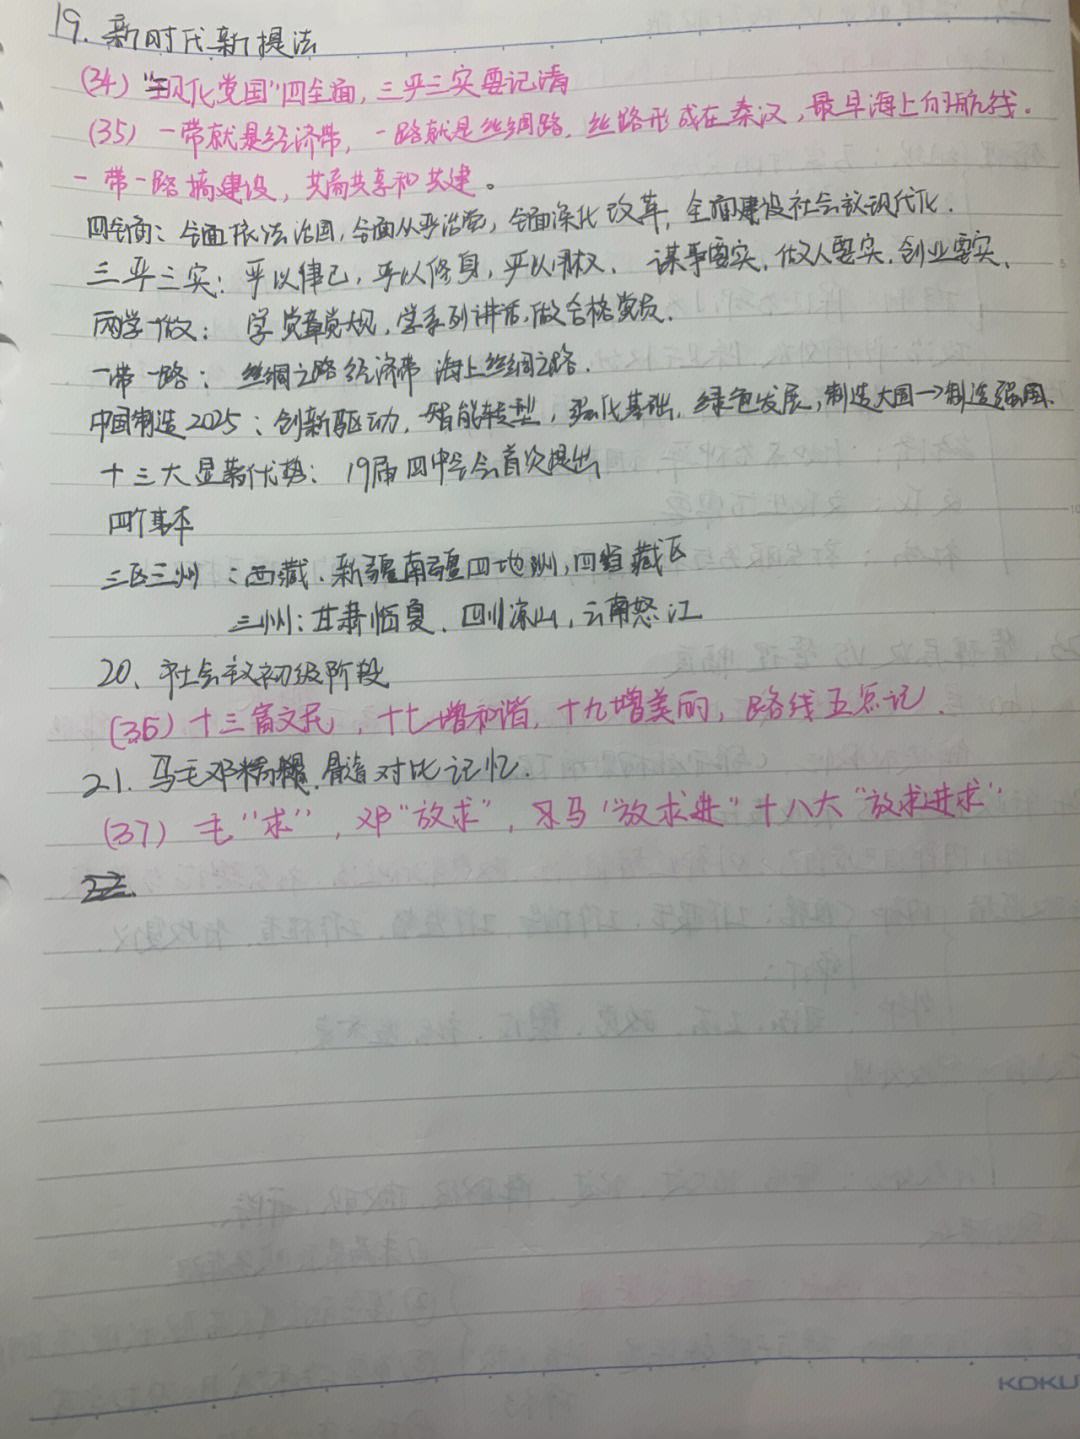 19. 新时代新提法
(34)"现代党国"四全面,三严三实要记清
(35)一带就是经济带,一路就是丝绸路.丝路形成在秦汉,最早海上的航线.
一带一路搞建设,共商共享和共建。
四全面:全面依法治国,全面从严治党,全面深化改革,全面建设社会主义现代化.
三严三实:严以律己,严以修身,严以用权、谋事要实,做人要实,创业要实、
两学一做:学党章党规,学系列讲话,做合格党员.
一带一路:丝绸之路经济带 海上丝绸之路.
中国制造2025:创新驱动,智能转型,强化基础,绿色发展,制造大国→制造强国.
十三大显著优势:19届四中全会首次提出
四个基本
三区三州:西藏、新疆南疆四地州,四省藏区
三州:甘肃临夏、四川凉山,云南怒江
20、社会主义初级阶段
(36)十三富文民,十七增和谐,十九增美丽,路线五点记.
21.马毛邓精髓,对比记忆.
(37)毛"求",邓"放求",习马"放求进"十八大"放求进求"
22.
KOKU